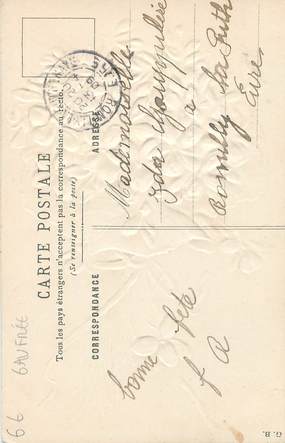 CARTE POSTALE
Tous les pays étrangers n'acceptent pas la correspondance au recto.
(Se renseigner à la poste)
CORRESPONDANCE
ADRESSE
bonne fête
f A
Mademoiselle
Ida
à
Romilly la Puth
Eure
GAUFRÉE
66
G. B.